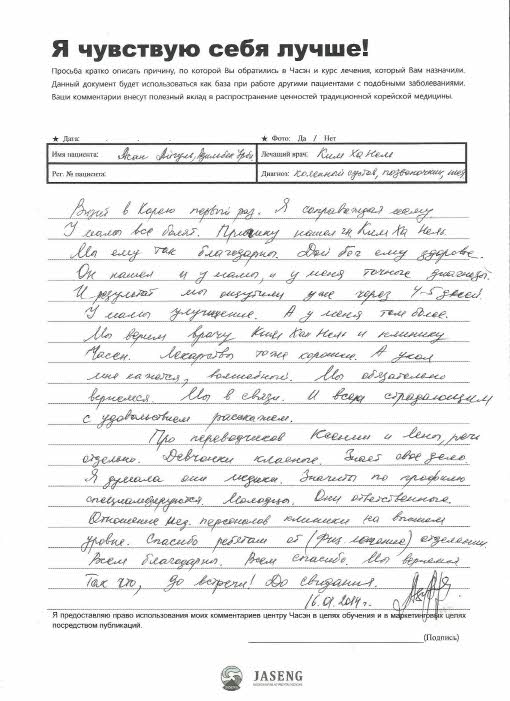 Я чувствую себя лучше!
Просьба кратко описать причину, по которой Вы обратились в Часэн и курс лечения, который Вам назначили.
Данный документ будет использоваться как база при работе другими пациентами с подобными заболеваниями.
Ваши комментарии внесут полезный вклад в распространение ценностей традиционной корейской медицины.
★ Дата: . . ★ Фото: Да / Нет
Имя пациента: Асан Айгуль, Лечащий врач: Ким Ха Нель
Рег. № пациента: Диагноз: коленный сустав, позвоночник, шея
в Корею первый раз. Я сопровождая маму
У мамы все болит. Причину нашел Ким Ха Нель.
Мы ему так благодарны. Дай бог ему здоровье.
Он нашел и у мамы, и у меня точные диагнозы.
И результат мы ощутили уже через 4-5 дней.
У мамы улучшение. А у меня тем более.
Мы верим врачу Ким Хан Нель и клинику
Часен. Лекарствы тоже хорошие. А укол
мне кажется, волшебный. Мы обязательно
вернемся. Мы в связи. И всем страдающим
с удовольствием расскажем.
Про переводчиков Ксении и Лены, речи
отдельно. Девчонки классные. Знает свое дело.
Я думала они медики. Значит по профилю
специализируются. Молодцы. Они ответственные.
Отношение мед. персоналов клиники на высшем
уровне. Спасибо ребятам от (Физ лечение) отделении.
Всем благодарны. Всем спасибо. Мы вернемся
Так что, до встречи! До свидания.
16.01.2014 г.
Я предоставляю право использования моих комментариев центру Часэн в целях обучения и в маркетинговых целях
посредством публикаций.
(Подпись)
JASENG